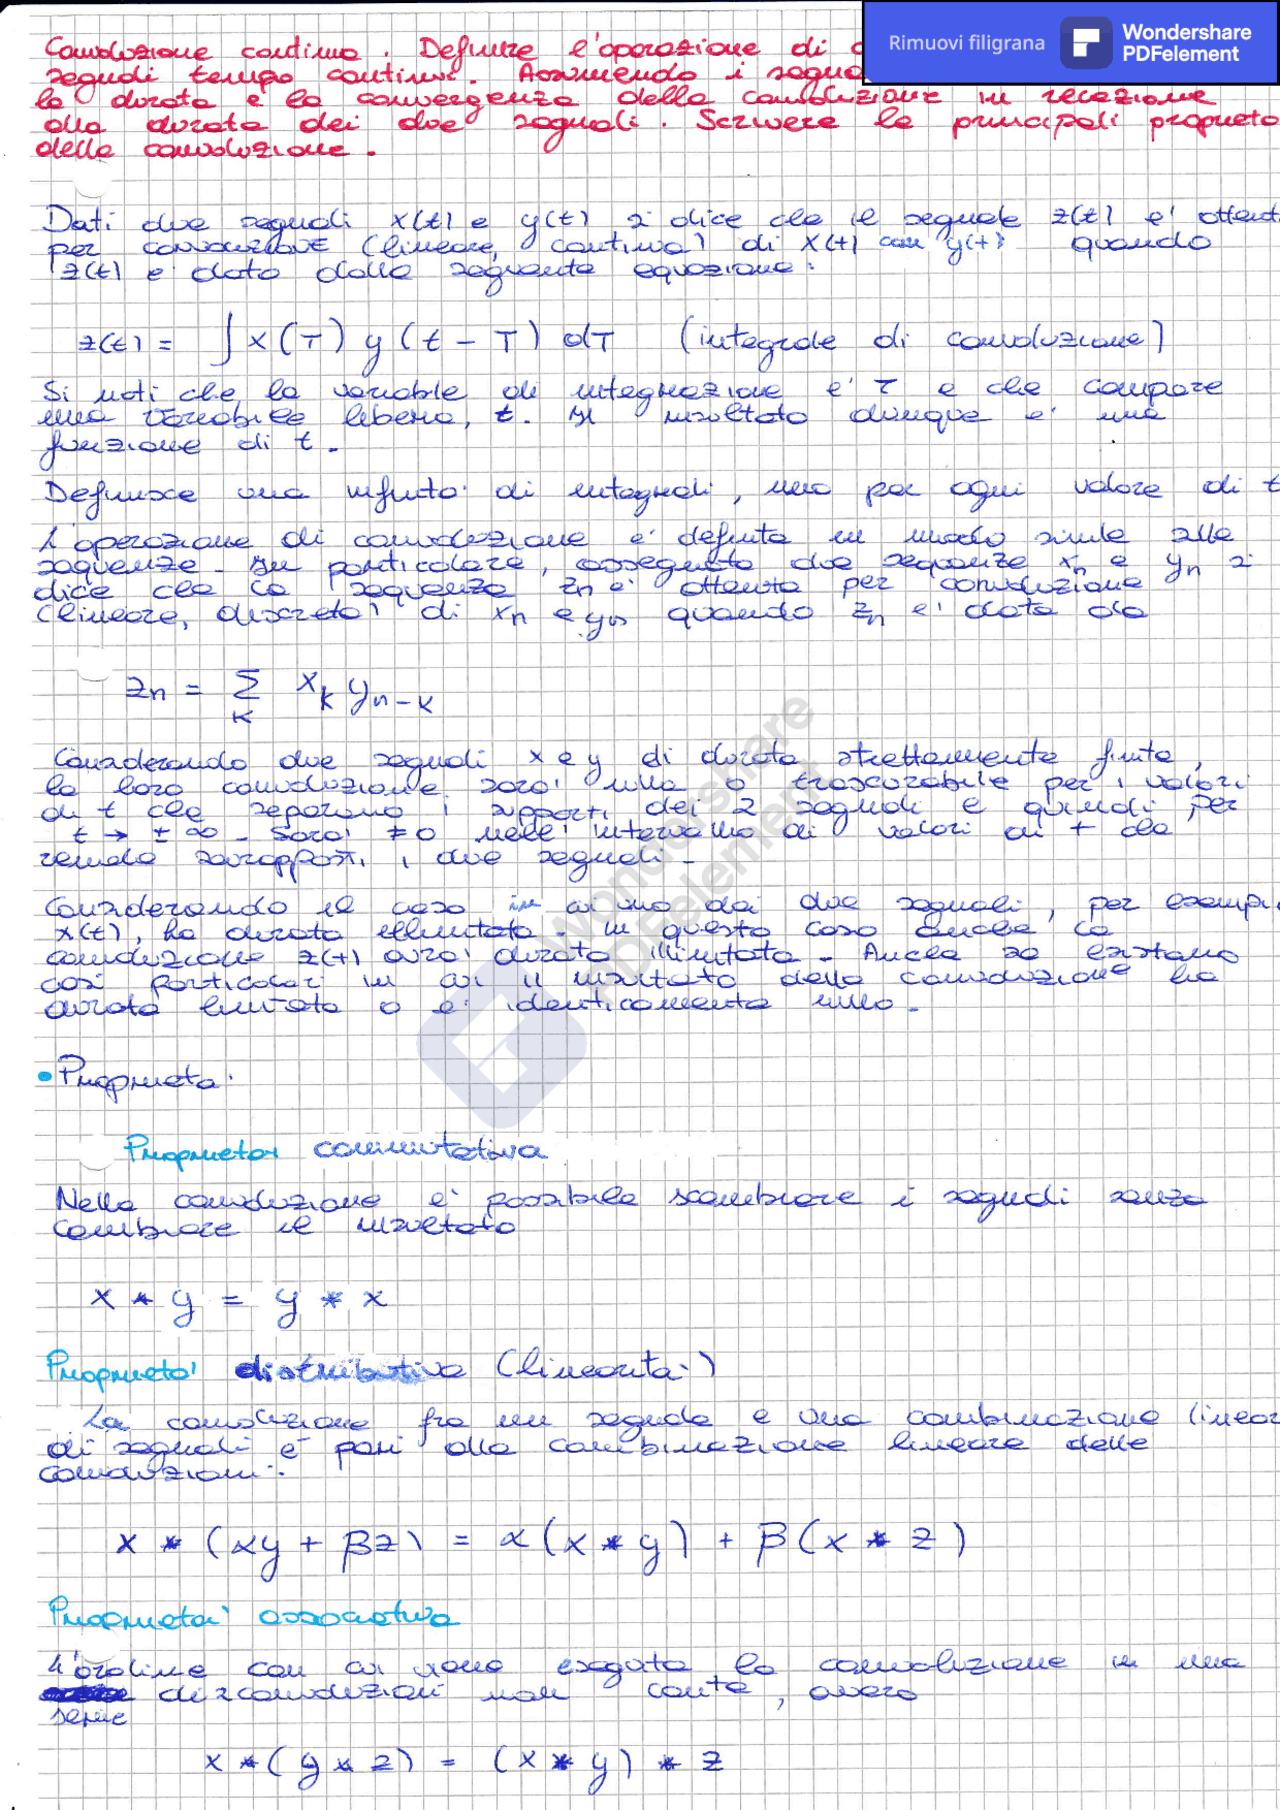 Rimuovi filigrana
Wondershare
PDFelement
Convoluzione continua. Definire l'operazione di c
segnali tempo continui. Assumendo i segna
la durata e la convergenza della convoluzione in relazione
alla durata dei due segnali. Scrivere le principali proprietà
della convoluzione.
Dati due segnali x(t) e y(t) si dice che il segnale z(t) e' ottenut
per convoluzione (lineare, continua) di x(t) con y(t) quando
z(t) e' dato dalla seguente equazione:
z(t) = ∫ x(T) y(t - T) dT (integrale di convoluzione)
Si noti che la variabile di integrazione e' τ e che compare
una variabile libera, t. Il risultato dunque e' una
funzione di t.
Definisce una infinita' di integrali, uno per ogni valore di t
L'operazione di convoluzione e' definita in modo simile alle
sequenze. In particolare, assegnate due sequenze xn e yn si
dice che la sequenza zn e' ottenuta per convoluzione
(lineare, discreta) di xn e yn quando zn e' data da
zn = Σ xk yn-k
K
Considerando due segnali x e y di durata strettamente finita,
la loro convoluzione sara' nulla o trascurabile per i valori
di t che separano i supporti dei 2 segnali e quindi per
t → ± ∞. Sara' ≠ 0 nell'intervallo di valori di t che
rende sovrapposti i due segnali.
Considerando il caso in cui uno dei due segnali, per esempi
x(t), ha durata illimitata. In questo caso anche la
convoluzione z(t) avra' durata illimitata. Anche se esistono
casi particolari in cui il risultato della convoluzione ha
durata limitata o e' identicamente nullo.
• Proprieta'
Proprieta' commutativa
Nella convoluzione e' possibile scambiare i segnali senza
cambiare il risultato
x * y = y * x
Proprieta' distributiva (linearita')
La convoluzione fra un segnale e una combinazione linear
di segnali e' pari alla combinazione lineare delle
convoluzioni:
x * (αy + βz) = α(x * y) + β(x * z)
Proprieta' associativa
L'ordine con cui viene eseguita la convoluzione in una
serie di 2 convoluzioni non conta, ovvero
x * (y * z) = (x * y) * z
Wondershare
PDFelement